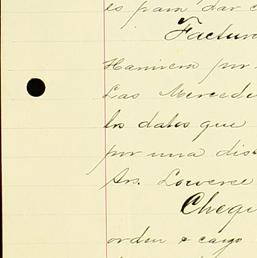 es para dar c
Factura
Harinera por
Las Mercede
los datos que
por una dis
Sr. Lowerre
Chequ
orden & cargo